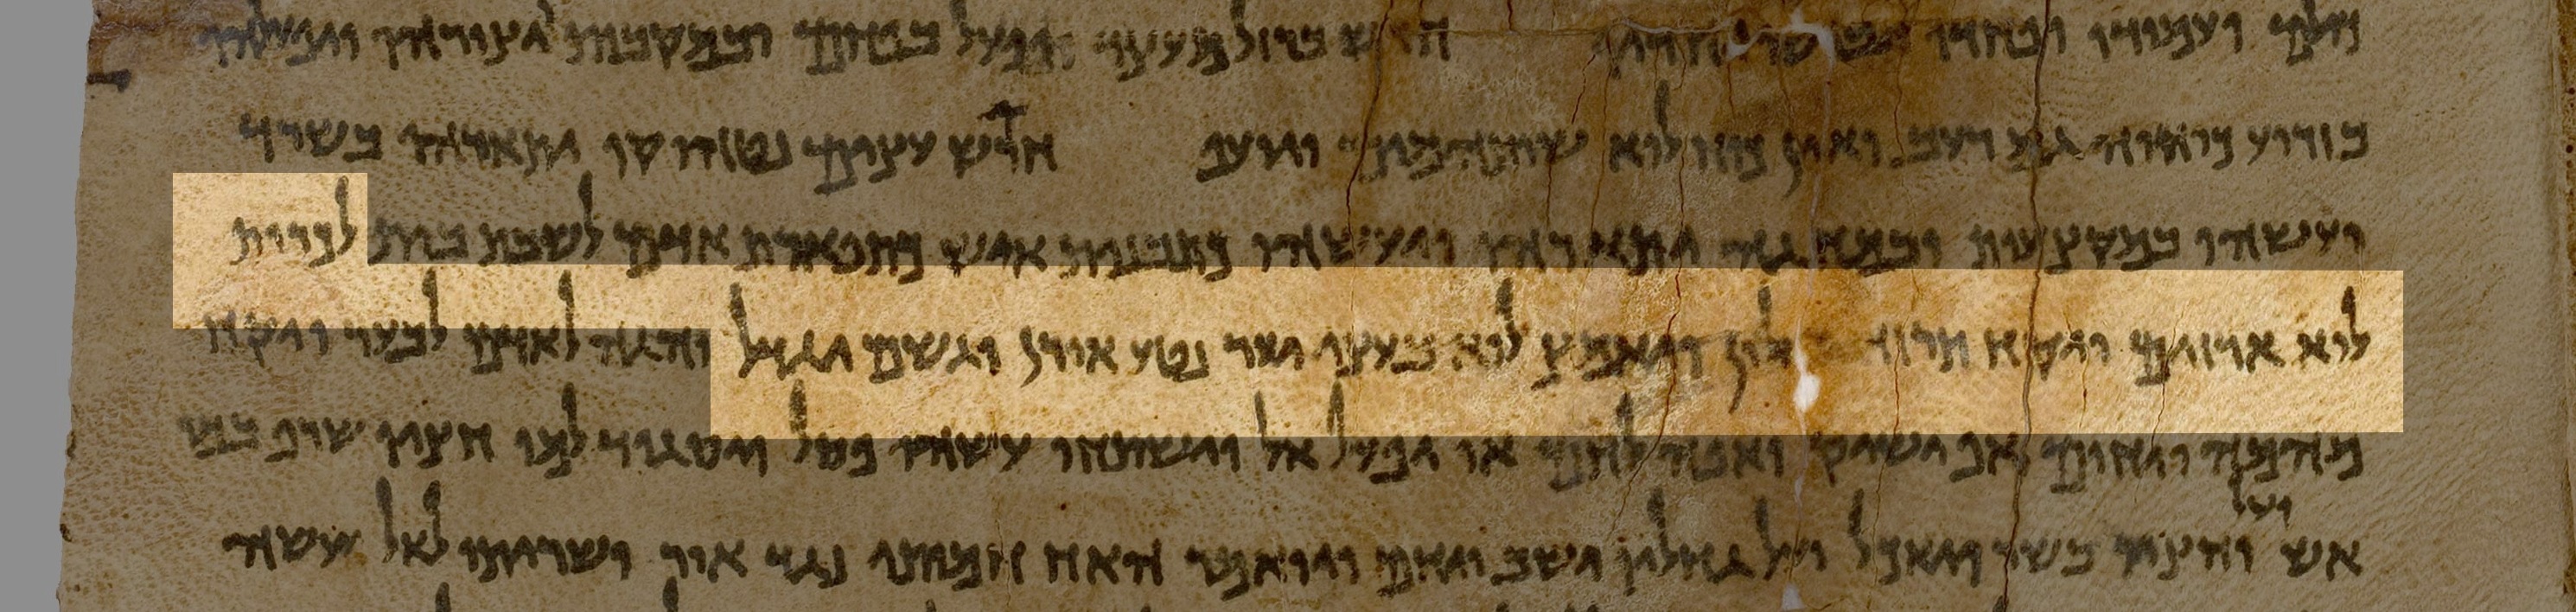 כולם ויעמודו ופחדו ויבושו יחדיו חרש ברזל מעצד ופעל בפחם ובמקבות יצורהו ויפעלהו
בזרוע כוחוה גם רעב ואין כוח ולוא שתה מים ויעף חרש עצים נטהו קו ויתארהו בשרד
ויעשהו במקצעות ובמחוגה יתארהו ויעשהו כתבנית איש כתפארת אדם לשבת בית לכרות
לוא ארזים ויקח תרזה ואלון ויאמץ לוא בעצי יער נטע אורן וגשם יגדל והיה לאדם לבער ויקח
מהמה ויחום אף ישיק ואפה לחם או יפעל אל וישתחוו עשהו פסל ויסגוד למו חציו שרף במו
ועל
אש וחציו בשר ויאכל ועל גחליו ישב ויחם ויאמר האח חמותי נגד אור ושריתו לאל עשה